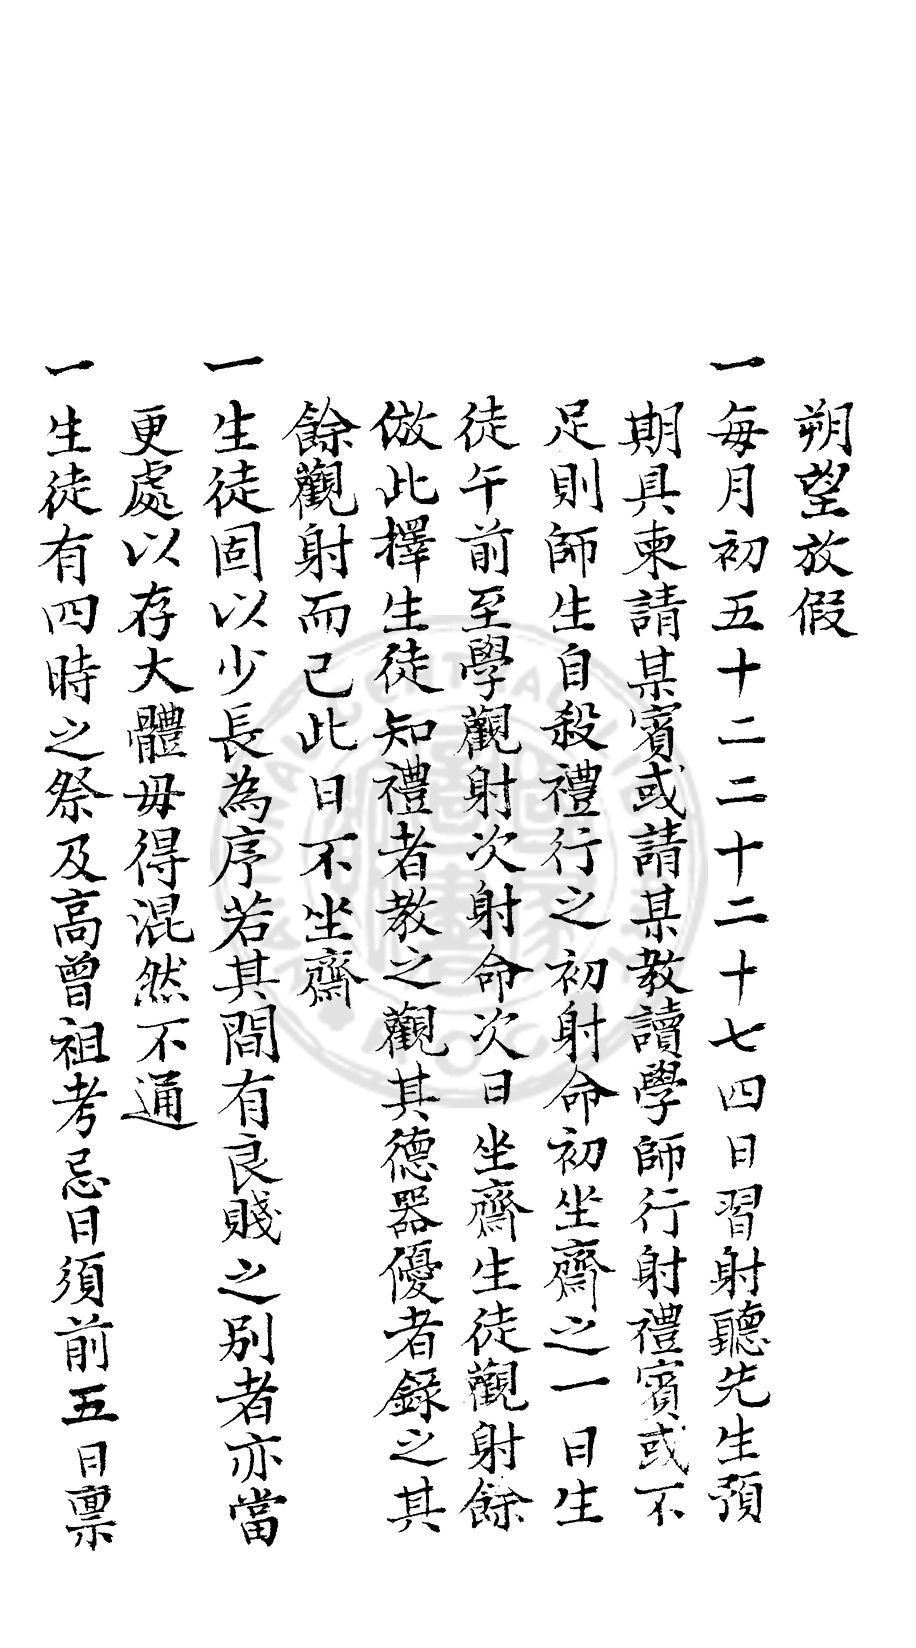 朔望放假
一每月初五十二二十二十七四日習射聽先生預
期具柬請某賓或請某教讀學師行射禮賓或不
足則師生自殺禮行之初射命初坐齋之一日生
徒午前至學觀射次射命次日坐齋生徒觀射餘
倣此擇生徒知禮者教之觀其德器優者錄之其
餘觀射而已此日不坐齋
一生徒固以少長為序若其間有良賤之別者亦當
更處以存大體毋得混然不通
一生徒有四時之祭及高曾祖考忌日須前五日禀